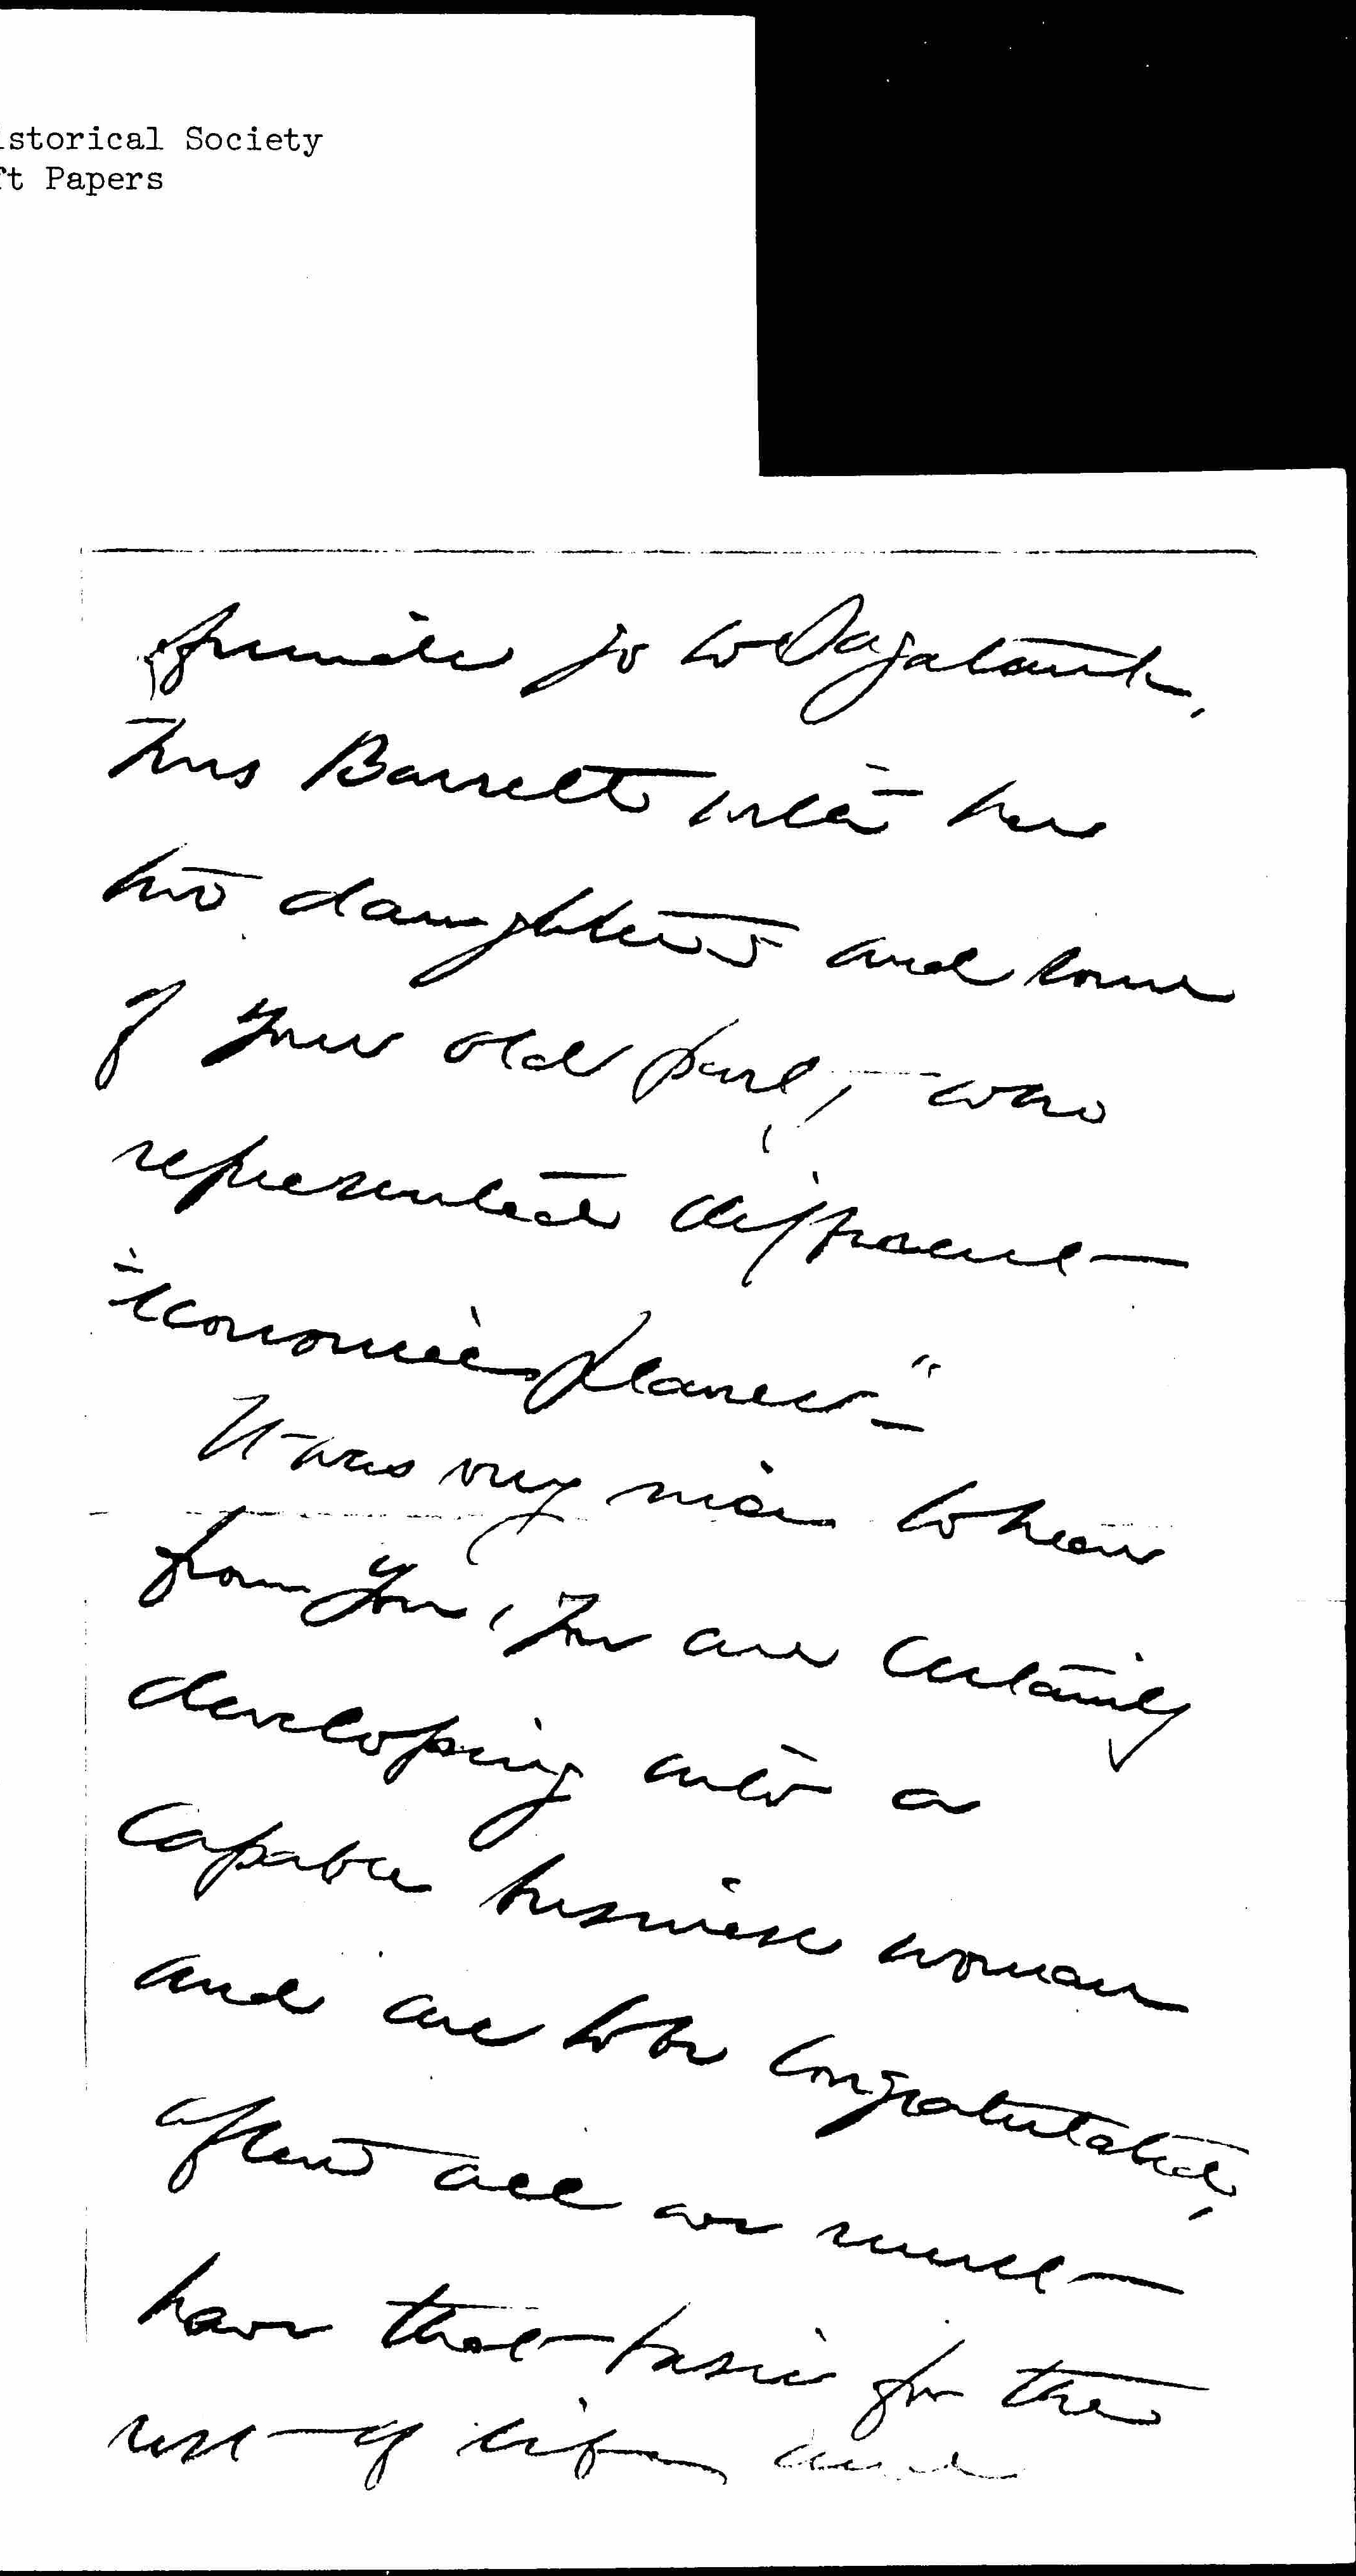 istorical Society
ft Papers
friends go to Pagatauk,
Mrs Barrett with her
two daughters and some
of your old part, - who
represented different
"economic planes"
It was very nice to hear
from you, You are certainly
developing into a
capable business woman
and are to be congratulated,
after all we must
have that basis for the
rest of life and